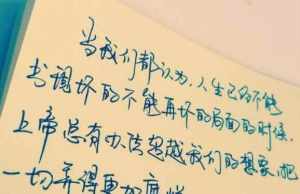 当我们都认为,人生已经不能
书调坏的不能再坏的局面的时候,
上帝总有办法超越我们的想象,把
一切弄得更加糜烂